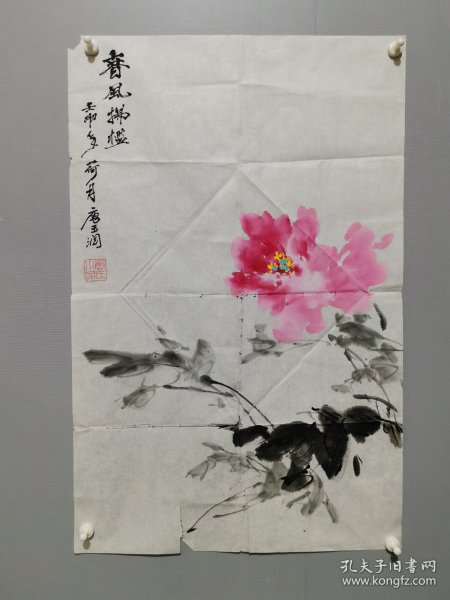 春风拂槛
壬申年荷月唐玉润
孔夫子旧书网
www.kongfz.com